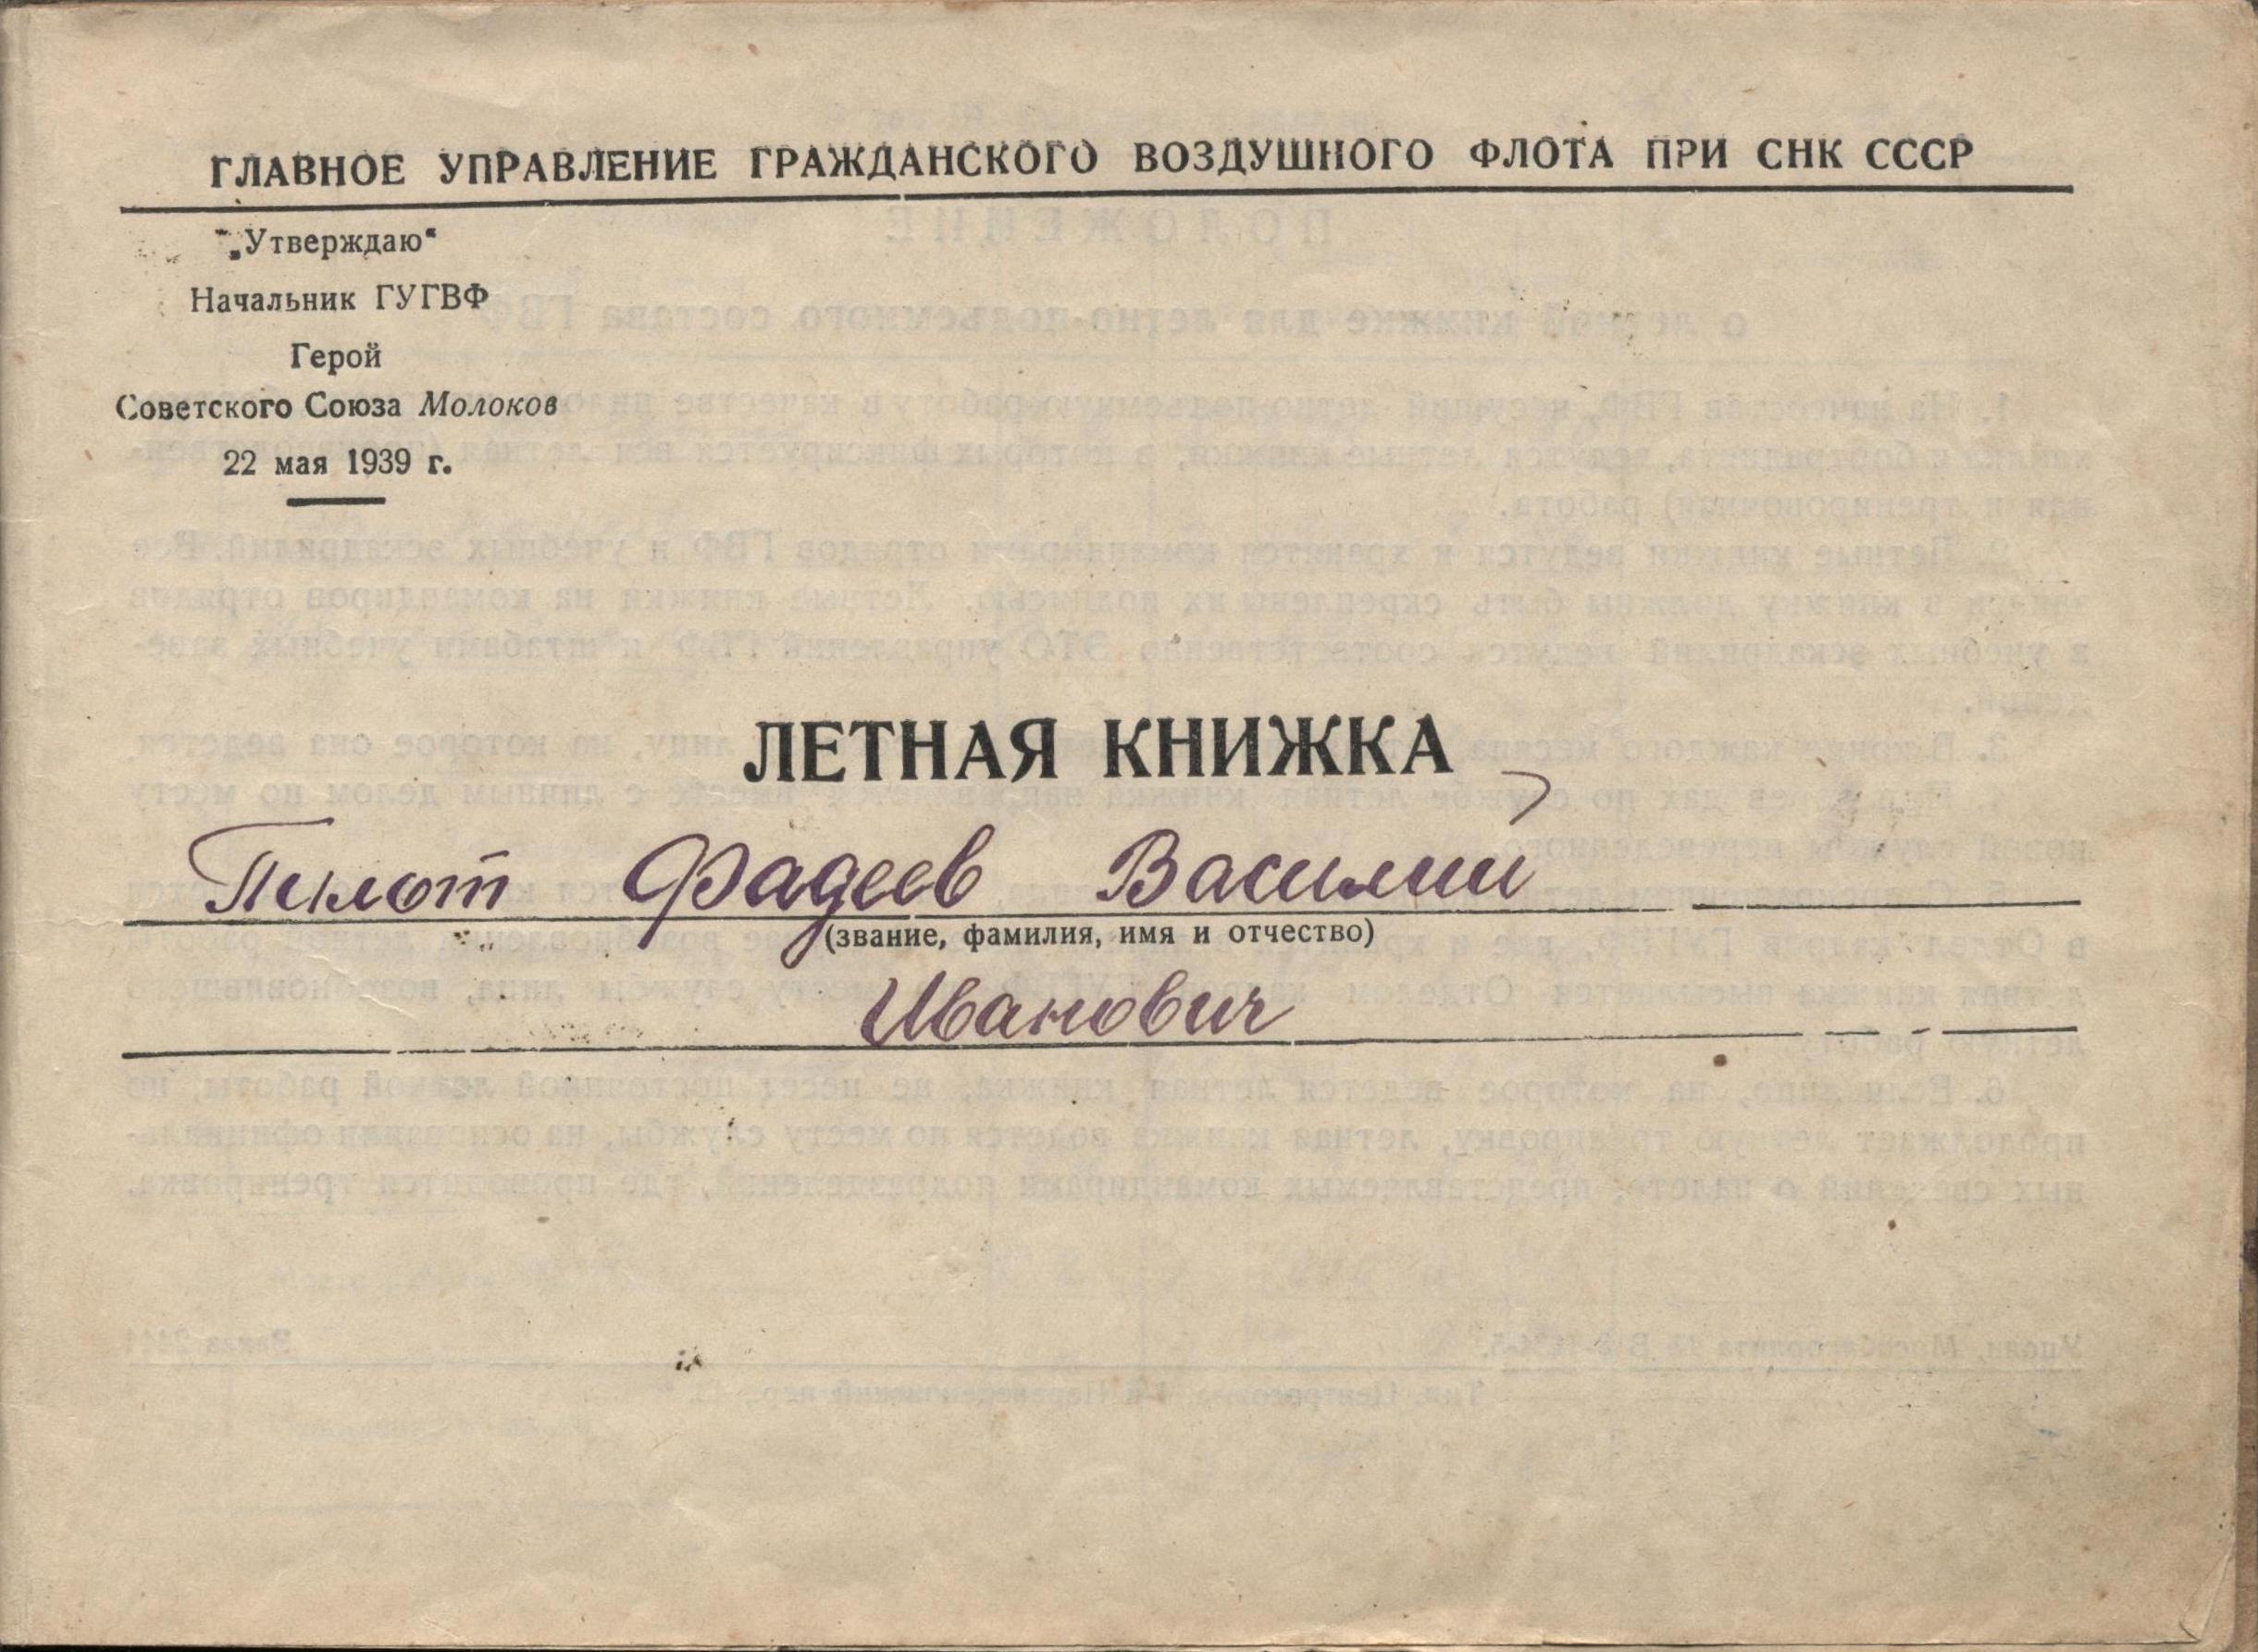 ГЛАВНОЕ УПРАВЛЕНИЕ ГРАЖДАНСКОГО ВОЗДУШНОГО ФЛОТА ПРИ СНК СССР
„Утверждаю“
Начальник ГУГВФ
Герой
Советского Союза Молоков
22 мая 1939 г.
ЛЕТНАЯ КНИЖКА
Пилот Фадеев Василий
(звание, фамилия, имя и отчество)
Иванович